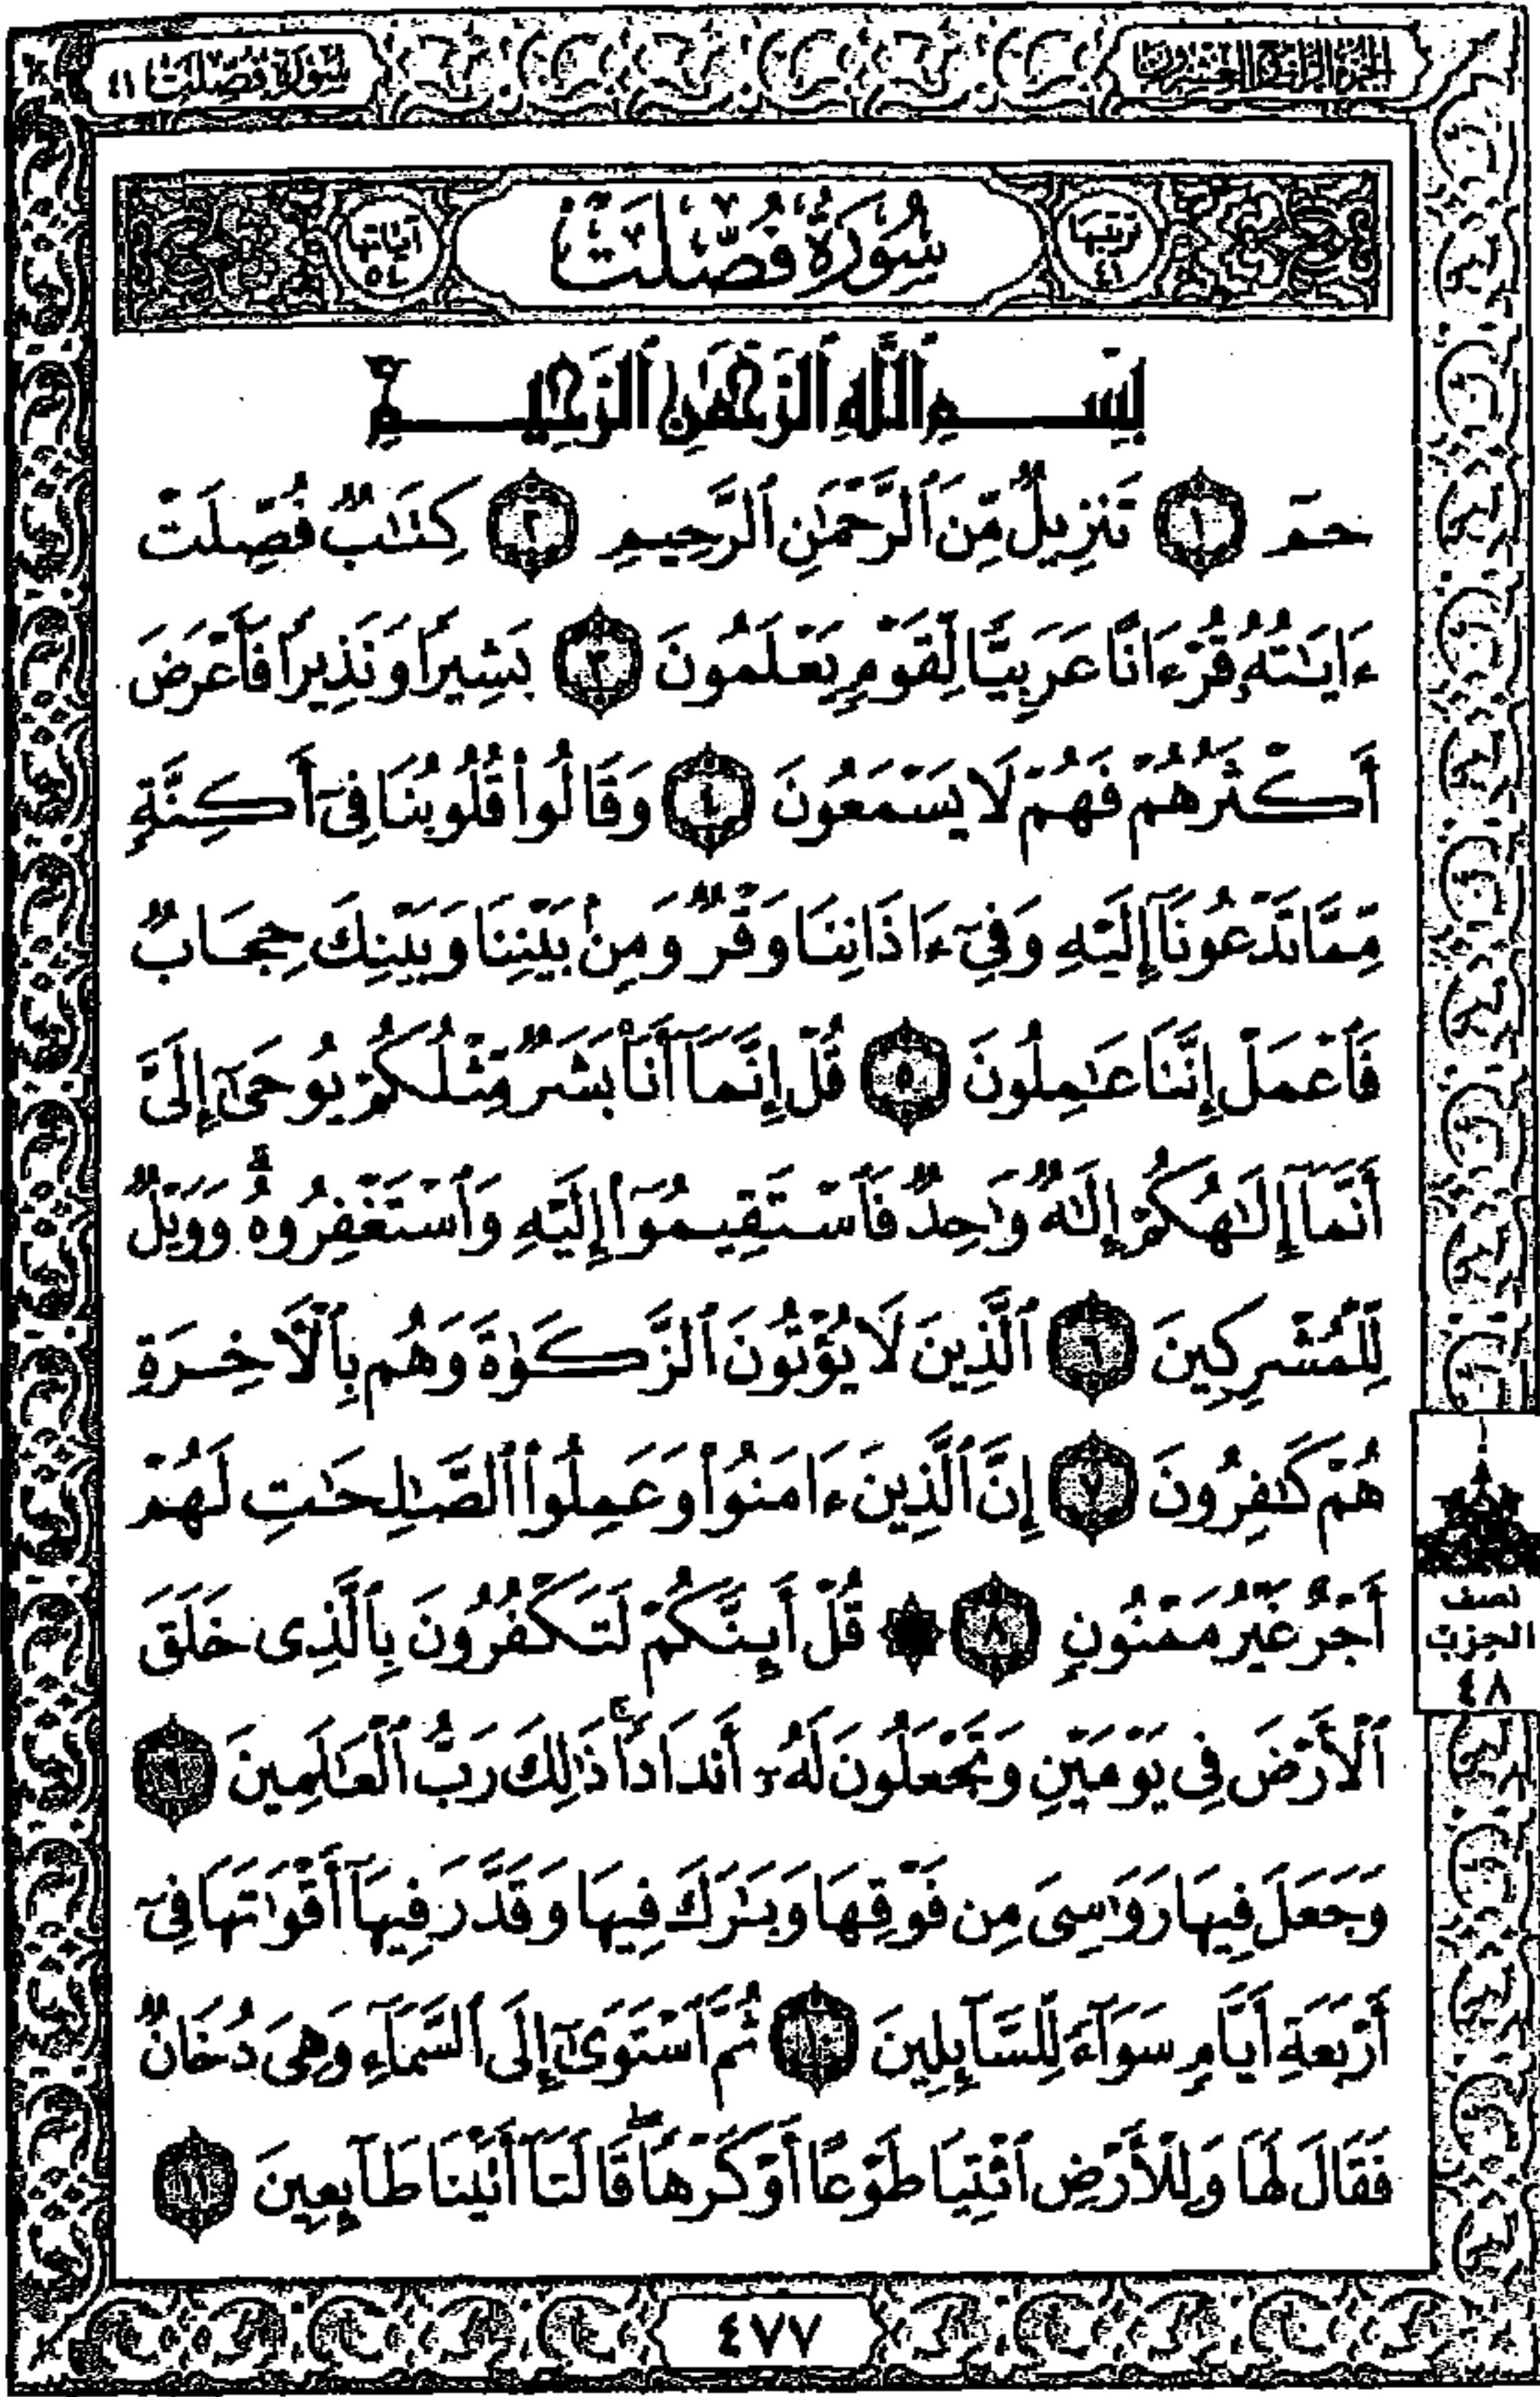 الجزء الرابع والعشرون
سورة فصلت ٤١
ترتيبها ٤١
سُورَةُ فُصِّلَتْ
آياتها ٥٤
بِسْمِ ٱللَّهِ ٱلرَّحْمَٰنِ ٱلرَّحِيمِ
حمٓ ١ تَنزِيلٌ مِّنَ ٱلرَّحْمَٰنِ ٱلرَّحِيمِ ٢ كِتَٰبٌ فُصِّلَتْ
ءَايَٰتُهُۥ قُرْءَانًا عَرَبِيًّا لِّقَوْمٍ يَعْلَمُونَ ٣ بَشِيرًا وَنَذِيرًا فَأَعْرَضَ
أَكْثَرُهُمْ فَهُمْ لَا يَسْمَعُونَ ٤ وَقَالُوا۟ قُلُوبُنَا فِىٓ أَكِنَّةٍ
مِّمَّا تَدْعُونَآ إِلَيْهِ وَفِىٓ ءَاذَانِنَا وَقْرٌ وَمِنۢ بَيْنِنَا وَبَيْنِكَ حِجَابٌ
فَٱعْمَلْ إِنَّنَا عَٰمِلُونَ ٥ قُلْ إِنَّمَآ أَنَا۠ بَشَرٌ مِّثْلُكُمْ يُوحَىٰٓ إِلَىَّ
أَنَّمَآ إِلَٰهُكُمْ إِلَٰهٌ وَٰحِدٌ فَٱسْتَقِيمُوٓا۟ إِلَيْهِ وَٱسْتَغْفِرُوهُ ۗ وَوَيْلٌ
لِّلْمُشْرِكِينَ ٦ ٱلَّذِينَ لَا يُؤْتُونَ ٱلزَّكَوٰةَ وَهُم بِٱلْءَاخِرَةِ
هُمْ كَٰفِرُونَ ٧ إِنَّ ٱلَّذِينَ ءَامَنُوا۟ وَعَمِلُوا۟ ٱلصَّٰلِحَٰتِ لَهُمْ
أَجْرٌ غَيْرُ مَمْنُونٍ ٨ ۞ قُلْ أَئِنَّكُمْ لَتَكْفُرُونَ بِٱلَّذِى خَلَقَ
ٱلْأَرْضَ فِى يَوْمَيْنِ وَتَجْعَلُونَ لَهُۥٓ أَندَادًا ۚ ذَٰلِكَ رَبُّ ٱلْعَٰلَمِينَ ٩
وَجَعَلَ فِيهَا رَوَٰسِىَ مِن فَوْقِهَا وَبَٰرَكَ فِيهَا وَقَدَّرَ فِيهَآ أَقْوَٰتَهَا فِىٓ
أَرْبَعَةِ أَيَّامٍ سَوَآءً لِّلسَّآئِلِينَ ١٠ ثُمَّ ٱسْتَوَىٰٓ إِلَى ٱلسَّمَآءِ وَهِىَ دُخَانٌ
فَقَالَ لَهَا وَلِلْأَرْضِ ٱئْتِيَا طَوْعًا أَوْ كَرْهًا ۖ قَالَتَآ أَتَيْنَا طَآئِعِينَ ١١
نصف
الحزب
٤٨
٤٧٧